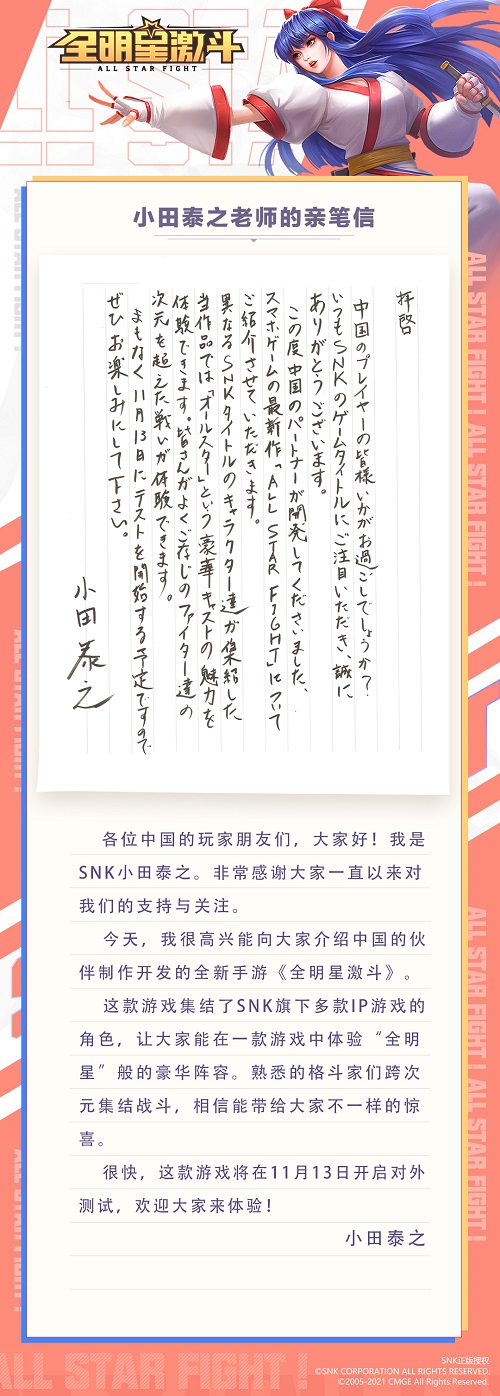 全明星激斗
ALL STAR FIGHT
小田泰之老师的亲笔信
拝啓
中国のプレイヤーの皆様いかがお過ごしでしょうか？
いつもSNKのゲームタイトルにご注目いただき、誠に
ありがとうございます。
この度中国のパートナーが開発してくださいました、
スマホゲームの最新作「ALL STAR FIGHT」について
ご紹介させていただきます。
異なるSNKタイトルのキャラクター達が集結した
当作品では「オールスター」という豪華キャストの魅力を
体験できます。皆さんがよくご存じのファイター達の
次元を超えた戦いが体験できます。
まもなく11月13日にテストを開始する予定ですので
ぜひお楽しみにして下さい。
小田泰之
各位中国的玩家朋友们，大家好！我是
SNK小田泰之。非常感谢大家一直以来对
我们的支持与关注。
今天，我很高兴能向大家介绍中国的伙
伴制作开发的全新手游《全明星激斗》。
这款游戏集结了SNK旗下多款IP游戏的
角色，让大家能在一款游戏中体验“全明
星”般的豪华阵容。熟悉的格斗家们跨次
元集结战斗，相信能带给大家不一样的惊
喜。
很快，这款游戏将在11月13日开启对外
测试，欢迎大家来体验！
小田泰之
ALL STAR FIGHT ! ALL STAR FIGHT !
ALL STAR FIGHT ! ALL STAR FIGHT !
ALL STAR FIGHT !
SNK正版授权
©SNK CORPORATION ALL RIGHTS RESERVED.
©2005-2021 CMGE All Rights Reserved.